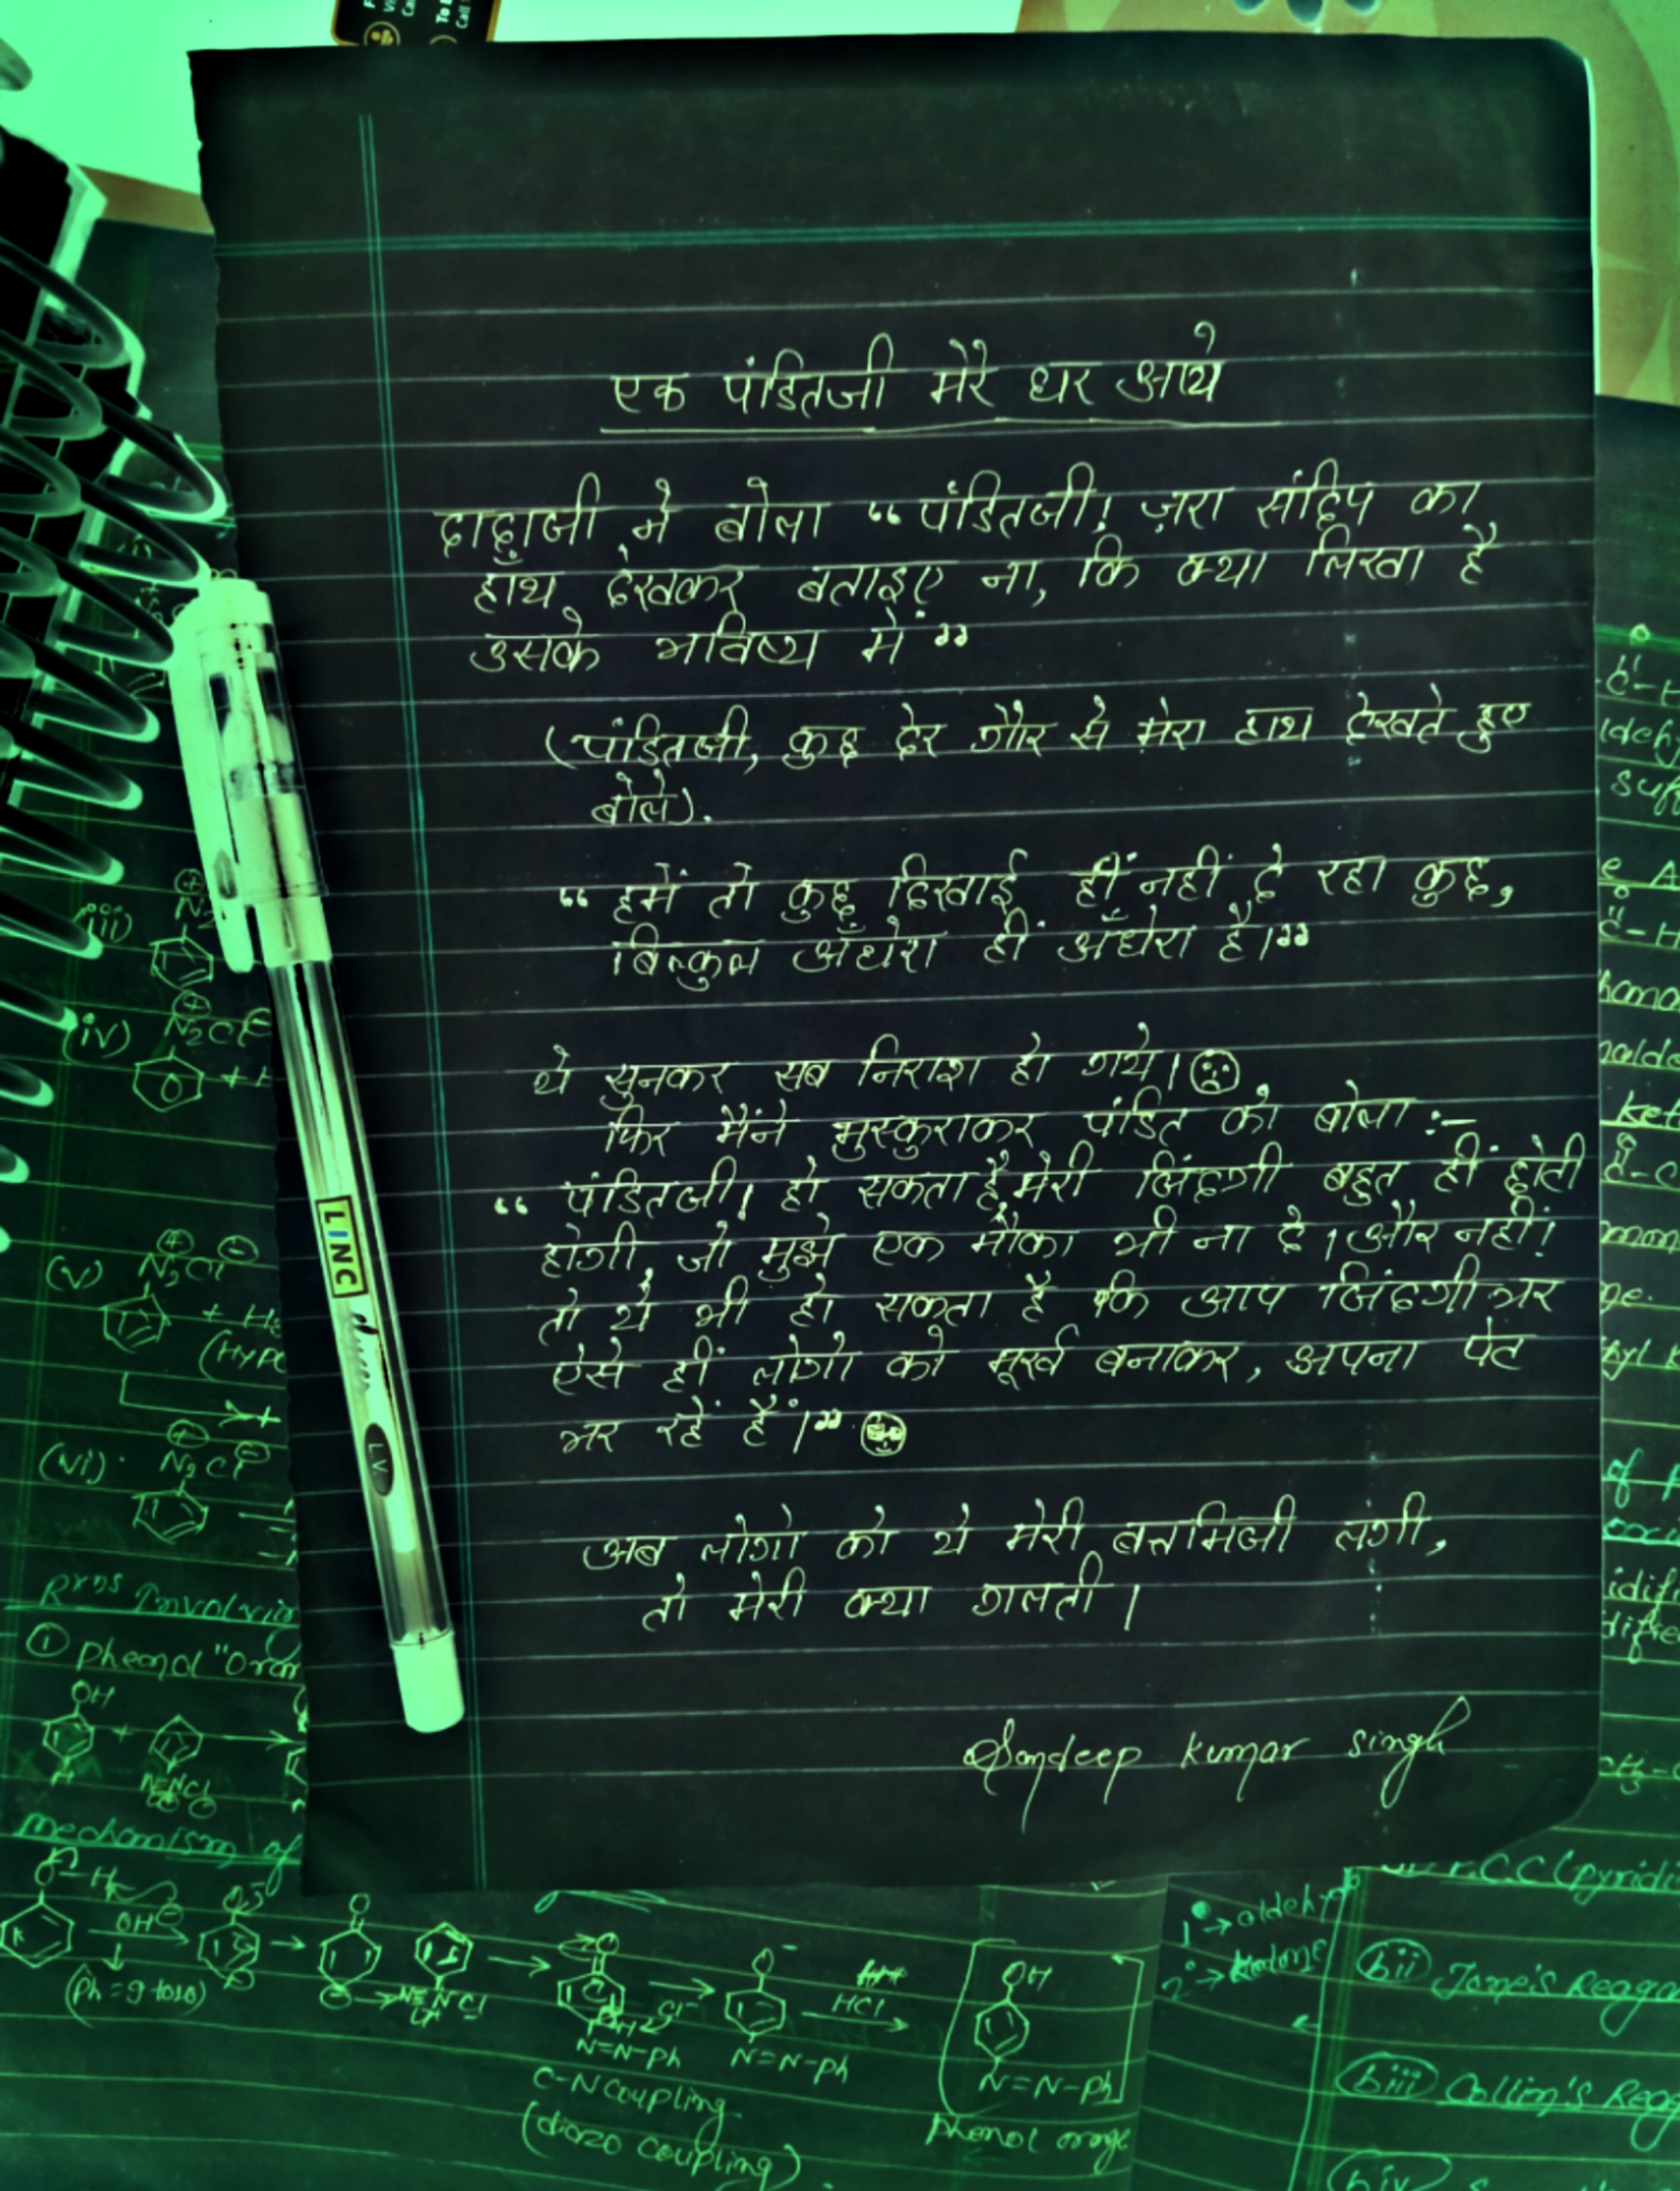 एक पंडितजी मेरे घर आये
दादाजी ने बोला “पंडितजी! ज़रा संदिप का
हाँथ देखकर बताइए ना, कि क्या लिखा है
उसके भविष्य में”
(पंडितजी, कुछ देर गौर से मेरा हाथ देखते हुए
बोले).
“हमें तो कुछ दिखाई हीं नहीं दे रहा कुछ,
बिल्कुल अँधेरा हीं अँधेरा है।”
ये सुनकर सब निराश हो गये।
फिर मैंने मुस्कुराकर पंडित को बोला :-
“पंडितजी! हो सकता है, मेरी जिंदगी बहुत हीं छोटी
होगी, जो मुझे एक मौका भी ना दे। और नहीं!
तो ये भी हो सकता है कि आप जिंदगी भर
ऐसे हीं लोगो को मूर्ख बनाकर, अपना पेट
भर रहें हैं।”
अब लोगो को ये मेरी बत्तमिजी लगी,
तो मेरी क्या गलती।
Sandeep Kumar Singh
LINC
(iii)
(iv) N2Cl
(v) N2Cl
(vi) N2Cl
Rxns Involving
① phenol "Oran
OH
mechanism of
OH
(Ph = 9 to 10)
HCl
OH
N=N-Ph
N=N-Ph
N=N-Ph
C-N coupling
(diazo coupling)
phenol orange
P.C.C (pyridi
1° → aldehyde
2° → ketone
(bii) Jone's Reaga
(biii) Collin's Reag
(biv)